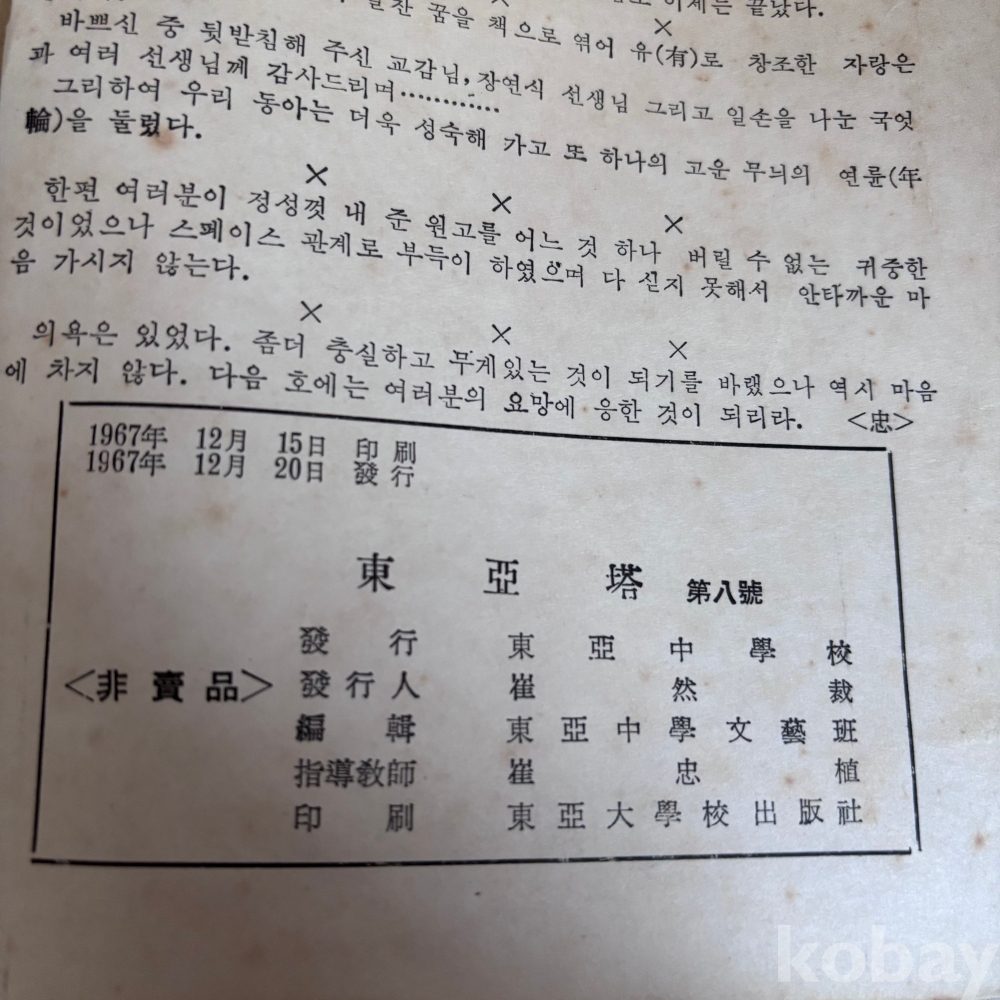 꿈을 책으로 엮어 유(有)로 창조한 자랑은 이제는 끝났다.
×
바쁘신 중 뒷받침해 주신 교감님, 장연식 선생님 그리고 일손을 나눈 국엇
과 여러 선생님께 감사드리며…………
그리하여 우리 동아는 더욱 성숙해 가고 또 하나의 고운 무늬의 연륜(年
輪)을 둘렀다.
× × ×
한편 여러분이 정성껏 내 준 원고를 어느 것 하나 버릴 수 없는 귀중한
것이었으나 스페이스 관계로 부득이 하였으며 다 싣지 못해서 안타까운 마
음 가시지 않는다.
× × ×
의욕은 있었다. 좀더 충실하고 무게있는 것이 되기를 바랬으나 역시 마음
에 차지 않다. 다음 호에는 여러분의 요망에 응한 것이 되리라. <忠>
1967年 12月 15日 印刷
1967年 12月 20日 發行
東亞塔 第八號
發行 東亞中學校
<非賣品> 發行人 崔然裁
編輯 東亞中學文藝班
指導敎師 崔忠植
印刷 東亞大學校出版社
kobay